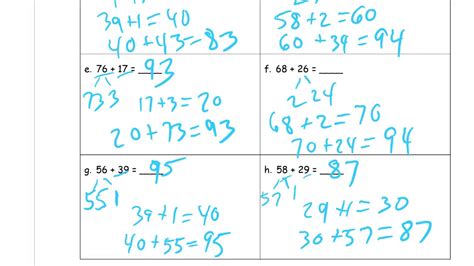 39+1=40
40+43=83
58+2=60
60+34=94
e. 76 + 17 = 93
73 3
17+3=20
20+73=93
f. 68 + 26 = ____
2 24
68+2=70
70+24=94
g. 56 + 39 = 95
55 1
39+1=40
40+55=95
h. 58 + 29 = 87
57 1
29+1=30
30+57=87